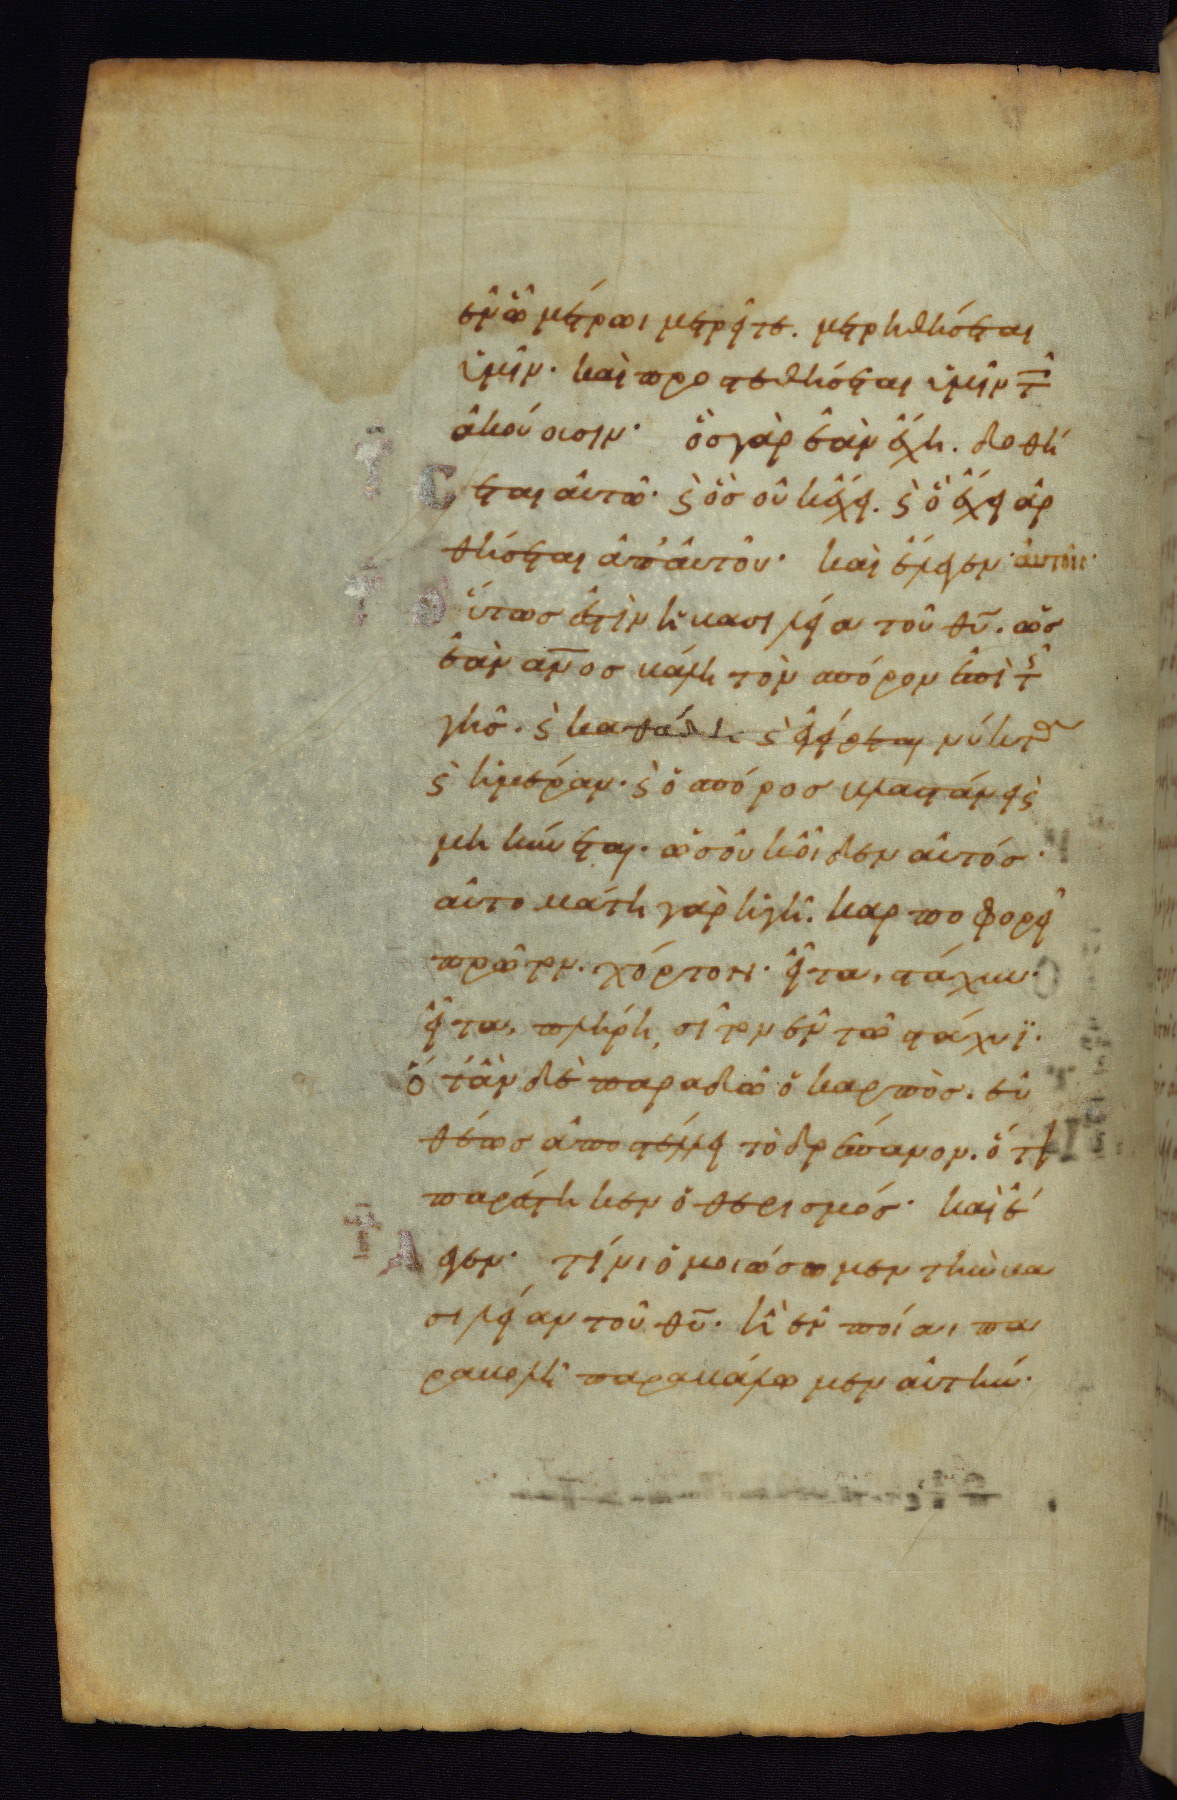 ἐν ὧ μέτρωι μετρεῖτε. μετρηθήσεται
ὑμῖν. καὶ προστεθήσεται ὑμῖν τοῖς
ἀκούουσιν. ὃς γὰρ ἐὰν ἔχη. δοθή
σεται αὐτῶ. ϛ ὃς οὐκ ἔχει. ϛ ὃ ἔχει ἀρ
θήσεται ἀπ' αὐτοῦ. καὶ ἔλεγεν. αὐτοῖς.
Οὕτως ἐστὶν ἡ βασιλεία τοῦ θυ. ὡς
ἐὰν ανος βάλη τὸν σπόρον ἐπὶ τῆς
γῆς. ϛ καθεύδη ϛ ἐγείρεται νύκτα
ϛ ἡμέραν. ϛ ὁ σπόρος βλαστάνει ϛ
μηκύνεται. ὡς οὐκ οἶδεν αὐτός.
αὐτομάτη γὰρ ἡ γῆ. καρποφορεῖ
πρῶτον. χόρτον. εἶτα, στάχυν.
εἶτα, πλήρη, σῖτον ἐν τῶ στάχυϊ.
ὅταν δὲ παραδῶ ὁ καρπὸς. εὐ
θέως ἀποστέλλει τὸ δρέπανον. ὅτι
παρέστηκεν ὁ θερισμός. καὶ ἔ
λεγεν. τίνι ὁμοιώσωμεν τὴν βα
σιλείαν τοῦ θυ. ἢ ἐν ποίαι πα
ραβολῆ παραβάλωμεν αὐτήν.